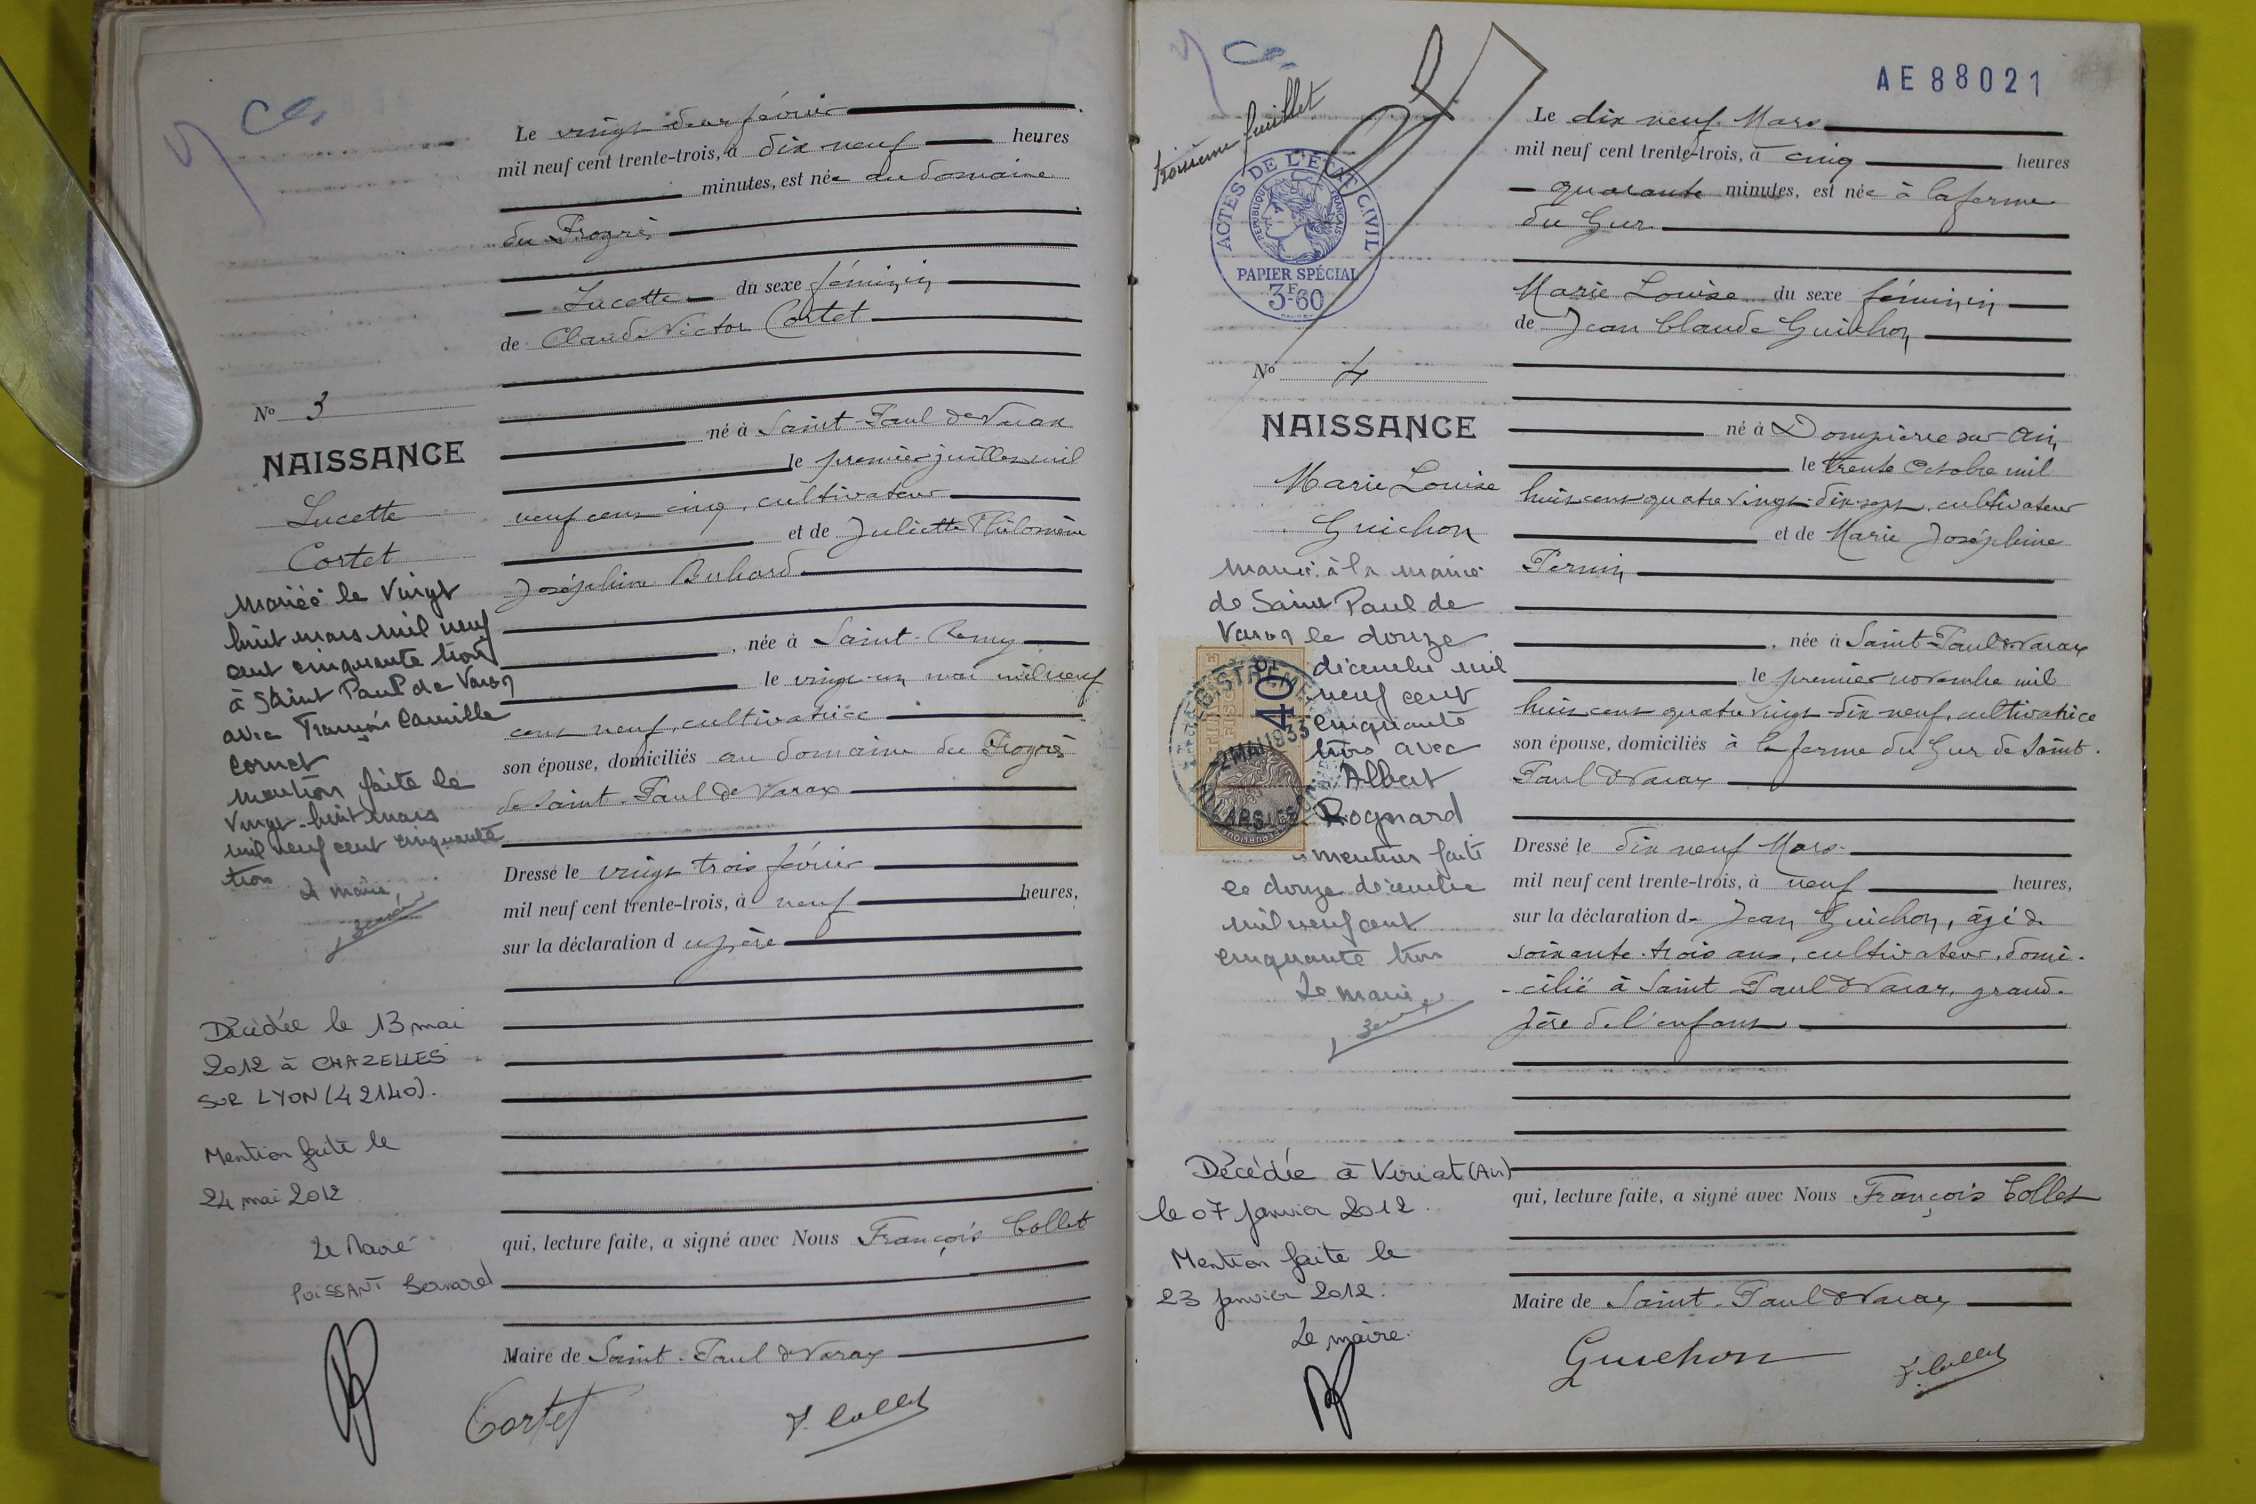 Le vingt deux février
mil neuf cent trente-trois, à dix neuf heures
minutes, est née au domaine
du Progrès
Lucette du sexe féminin
de Claude Victor Cortet
né à Saint-Paul de Varax
le premier juillet mil
neuf cent cinq, cultivateur
et de Juliette Philomène
Joséphine
née à Saint-Remy
le vingt-un mai mil neuf
cent neuf, cultivatrice
son épouse, domiciliés au domaine du Progrès
de Saint-Paul de Varax
Dressé le vingt trois février
mil neuf cent trente-trois, à neuf heures,
sur la déclaration du père
qui, lecture faite, a signé avec Nous François Collet
Maire de Saint-Paul de Varax
Cortet
F. Collet
Nº 3
NAISSANCE
Lucette
Cortet
Mariée le vingt
huit mars mil neuf
cent cinquante trois
à Saint Paul de Varax
avec François Camille
Cornet
Mention faite le
vingt-huit mars
mil neuf cent cinquante
trois
Le Maire,
Décédée le 13 mai
2012 à CHAZELLES
SUR LYON (42140).
Mention faite le
24 mai 2012
Le Maire
POISSANT Bernard
Troisième feuillet
ACTES DE L'ÉTAT CIVIL
RÉPUBLIQUE FRANÇAISE
PAPIER SPÉCIAL
3F.60
AE88021
Le dix neuf Mars
mil neuf cent trente-trois, à cinq heures
quarante minutes, est née à la ferme
du Gur
Marie Louise du sexe féminin
de Jean Claude Guichon
né à Dompierre sur Ain
le trente Octobre mil
huit cent quatre vingt-dix sept, cultivateur
et de Marie Joséphine
Perrin
née à Saint-Paul de Varax
le premier novembre mil
huit cent quatre vingt-dix neuf, cultivatrice
son épouse, domiciliés à la ferme du Gur de Saint-
Paul de Varax
Dressé le dix neuf Mars
mil neuf cent trente-trois, à neuf heures,
sur la déclaration de Jean Guichon, âgé de
soixante-trois ans, cultivateur, domi-
-cilié à Saint Paul de Varax, grand-
père de l'enfant
qui, lecture faite, a signé avec Nous François Collet
Maire de Saint-Paul de Varax
Guichon
F. Collet
Nº 4
NAISSANCE
Marie Louise
Guichon
Mariée à la mairie
de Saint Paul de
Varax le douze
décembre mil
neuf cent
cinquante
trois avec
Albert
Rognard
mention faite
le douze décembre
mil neuf cent
cinquante trois
Le Maire
40
2 MAI 1933
Décédée à Viriat (Ain)
le 07 janvier 2012.
Mention faite le
23 janvier 2012.
Le maire.